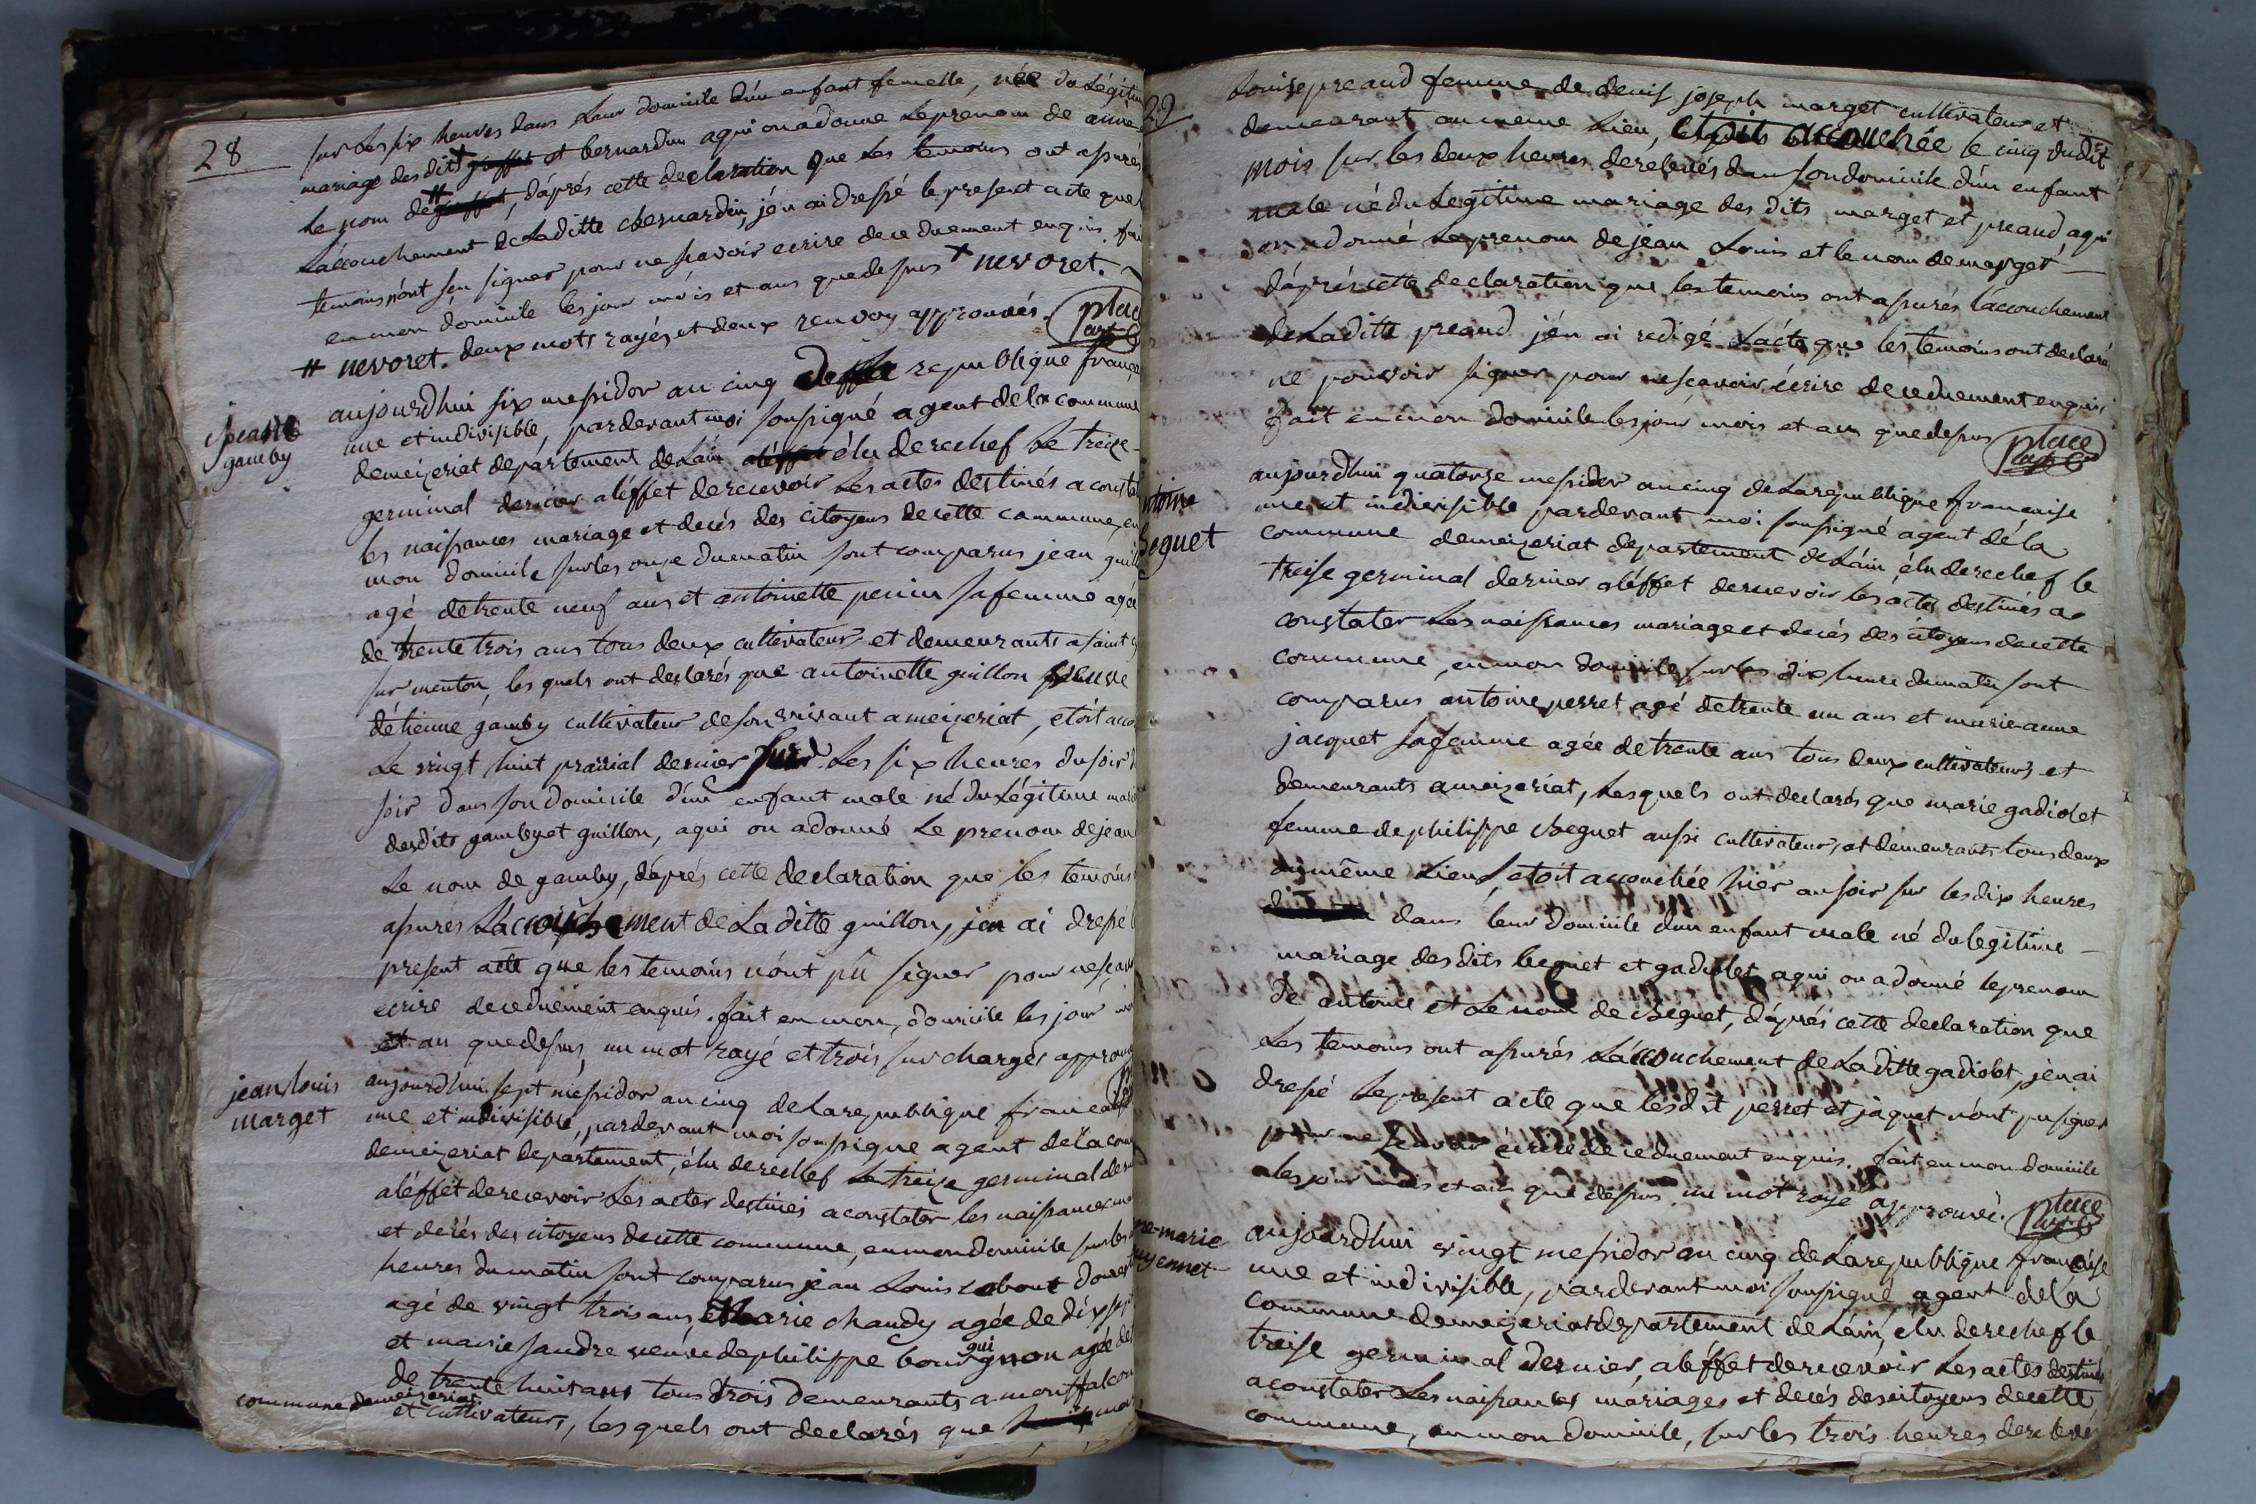 28
sur les six heures dans leur domicile d'un enfant femelle, née du légitim
mariage des dits + et bernardin a qui on a donné le prenom de anne
le nom de #, d'aprés cette declaration que les temoins ont assurés
l'accouchement de laditte bernardin, j'en ai dressé le present acte que
temoins n'ont sçu signer pour ne sçavoir ecrire de ce duement enquis. fai
en mon domicile les jour mois et ans que dessus + nevoret.
# nevoret. deux mots rayés et deux renvoy approuvés. place
jean
gamby
aujourdhui six messidor an cinq de la republique françai
une et indivisible, pardevant moi soussigné agent de la commune
demeizeriat département de l'ain élu derechef le treize
germinal dernier a l'éffet de recevoir les actes destinés a constat
les naissances mariage et decés des citoyens de cette commune, en
mon domicile sur les onze du matin sont comparus jean guill
agé de trente neuf ans et antoinette penin sa femme agée
de trente trois ans tous deux cultivateurs et demeurants a saint
sur menton, les quels ont declarés que antoinette guillon veuve
d'étienne gamby cultivateur de son vivant a meizeriat, etoit acco
le vingt huit prairial dernier sur les six heures du soir
soir dans son domicile d'un enfant male né du légitime maria
desdits gamby et guillon, a qui on a donné le prenom de jean
le nom de gamby, d'aprés cette declaration que les temoins
assurés l'accouchement de la ditte guillon, j'en ai dressé l
present acte que les temoins n'ont pû signer pour ne sçav
ecrire de ce duëment enquis. fait en mon domicile les jour moi
et an que dessus, un mot rayé et trois surchargés approuv
jean louis
marget
aujourdhui sept messidor an cinq de la republique française
une et indivisible, pardevant moi soussigné agent de la com
demeizeriat departement, élu derechef le treize germinal dern
a l'éffet de recevoir les actes destinés a constater les naissances ma
et decés des citoyens de cette commune, en mon domicile sur les
heures du matin sont comparus jean louis cabout domest
agé de vingt trois ans, et marie chaudy agée de dix sept
et marie sandre veuve de philippe bourguignon agée de
de trente huit ans tous trois demeurants a montfalcon
commune demeizeriat
et cultivateurs, les quels ont declarés que
29
Louise preaud femme de denis joseph marget cultivateur et
demeurant au meme lieu, etoit accouchée le cinq dudit
mois sur les deux heures de relevés dans son domicile d'un enfant
male né du legitime mariage des dits marget et preaud, a qui
on a donné le prenom de jean Louis et le nom de marget
d'aprés cette declaration que les temoins ont assurés l'accouchement
de laditte preaud j'en ai redigé l'acte que les temoins ont declaré
ne pouvoir signer pour ne sçavoir écrire de ce duement enquis
fait en mon domicile les jour mois et an que dessus place
ntoine
beguet
aujourdhui quatorze messidor an cinq de la republique francaise
une et indivisible pardevant moi soussigné agent de la
commune demeizeriat departement de l'ain élu derechef le
treise germinal dernier a l'éffet de recevoir les actes destinés a
constater les naissances mariage et decés des citoyens de cette
commune, en mon domicile sur les dix heure du matin sont
comparus antoine perret agé de trente un ans et marie anne
jacquet sa femme agée de trente ans tous deux cultivateurs et
demeurants a meizeriat, lesquels ont declarés que marie gadiolet
femme de philippe beguet aussi cultivateur, et demeurants tous deux
au même lieu, etoit accouchée hier au soir sur les dix heures
dans leur domicile d'un enfant male né du legitime
mariage des dits beguet et gadiolet a qui on a donné le prenom
de antoine et le nom de beguet, d'aprés cette declaration que
les temoins ont assurés l'accouchement de laditte gadiolet j'en ai
dressé le present acte que lesdit perret et jaquet n'ont pu signer
pour ne sçavoir écrire de ce duement enquis. fait en mon domicile
les jour mois et ans que dessus un mot rayé approuvé. place
ne-marie
uyennet
aujourdhui vingt messidor an cinq de la republique francaise
une et indivisible, pardevant moi soussigné agent de la
commune demeizeriat departement de l'ain, élu derechef le
treise germinal dernier, a l'éffet de recevoir les actes destinés
a constater les naissances mariages et decés des citoyens de cette
commune, en mon domicile, sur les trois heures de relevés